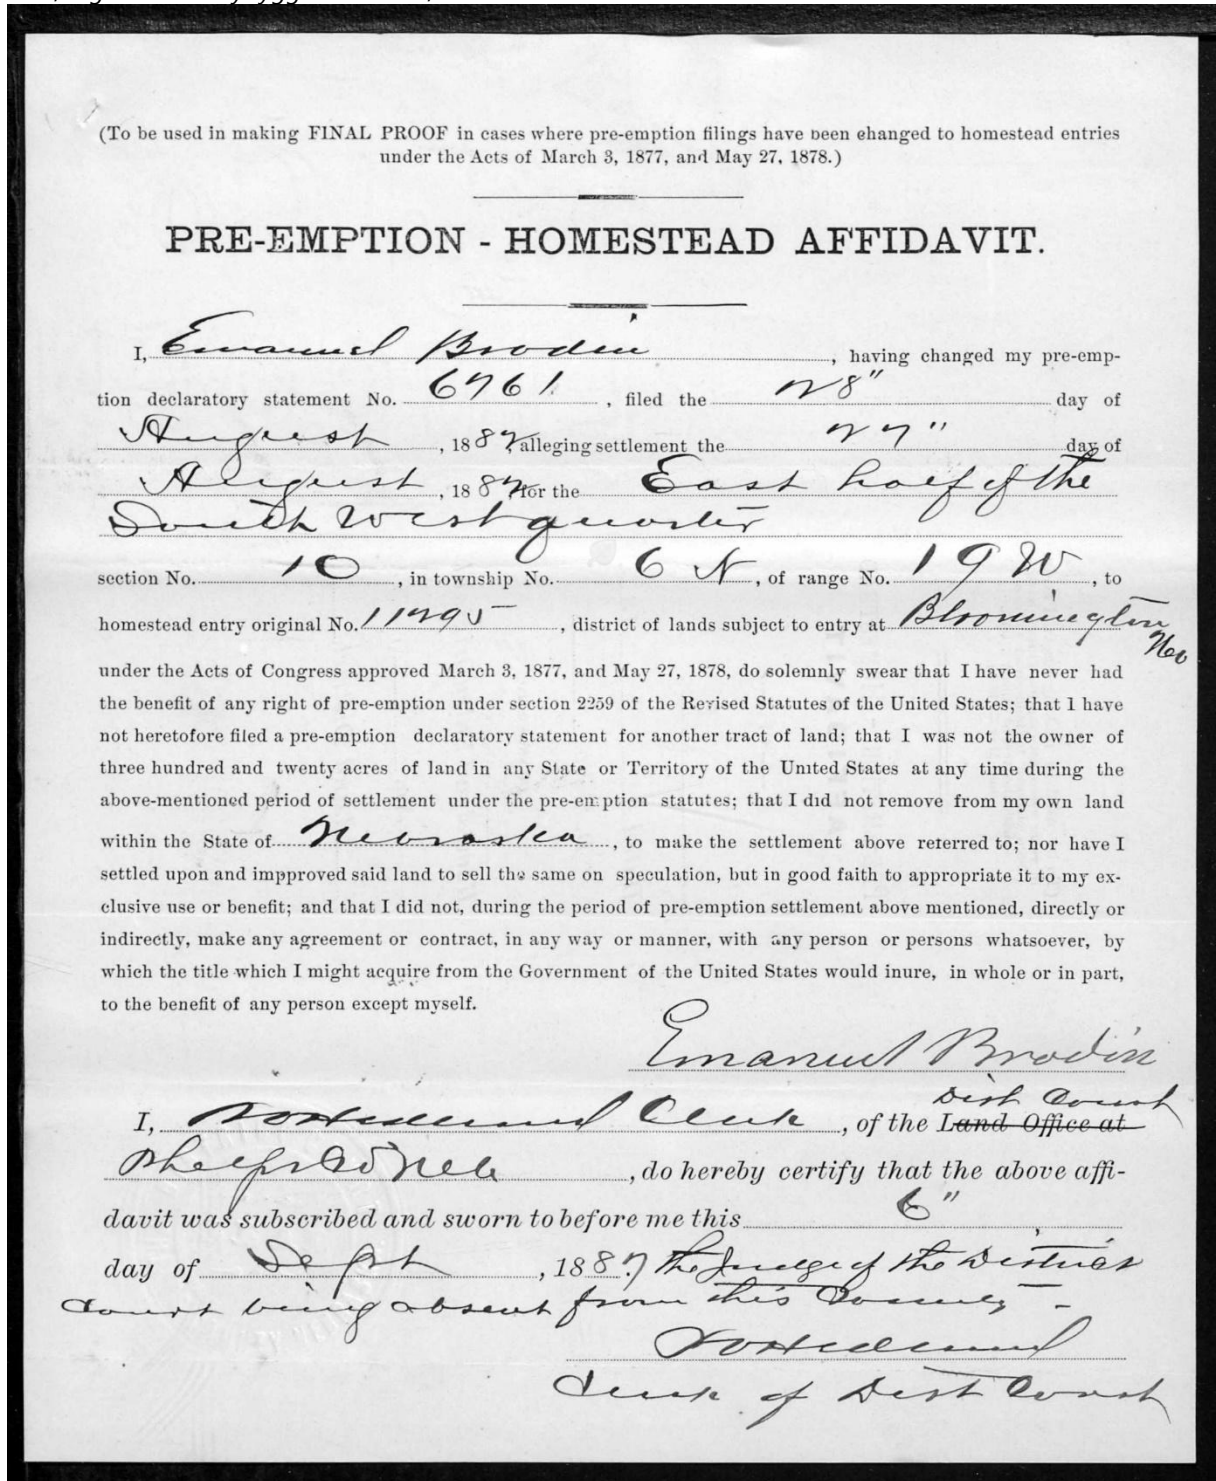 (To be used in making FINAL PROOF in cases where pre-emption filings have been changed to homestead entries
under the Acts of March 3, 1877, and May 27, 1878.)
PRE-EMPTION - HOMESTEAD AFFIDAVIT.
I, Emanuel Brodin, having changed my pre-emp-
tion declaratory statement No. 6761, filed the 28" day of
August, 1882, alleging settlement the 27" day of
August, 1882, for the East half of the
South West quarter
section No. 10, in township No. 6 N, of range No. 19 W, to
homestead entry original No. 11295, district of lands subject to entry at Bloomington
Neb
under the Acts of Congress approved March 3, 1877, and May 27, 1878, do solemnly swear that I have never had
the benefit of any right of pre-emption under section 2259 of the Revised Statutes of the United States; that I have
not heretofore filed a pre-emption declaratory statement for another tract of land; that I was not the owner of
three hundred and twenty acres of land in any State or Territory of the United States at any time during the
above-mentioned period of settlement under the pre-emption statutes; that I did not remove from my own land
within the State of Nebraska, to make the settlement above referred to; nor have I
settled upon and impproved said land to sell the same on speculation, but in good faith to appropriate it to my ex-
clusive use or benefit; and that I did not, during the period of pre-emption settlement above mentioned, directly or
indirectly, make any agreement or contract, in any way or manner, with any person or persons whatsoever, by
which the title which I might acquire from the Government of the United States would inure, in whole or in part,
to the benefit of any person except myself.
Emanuel Brodin
Dist Court
I, Clerk, of the Land Office at
Phelps Co Neb, do hereby certify that the above affi-
davit was subscribed and sworn to before me this 6"
day of Sept, 1887, the Judge of the District
Court being absent from this County -
Clerk of Dist Court